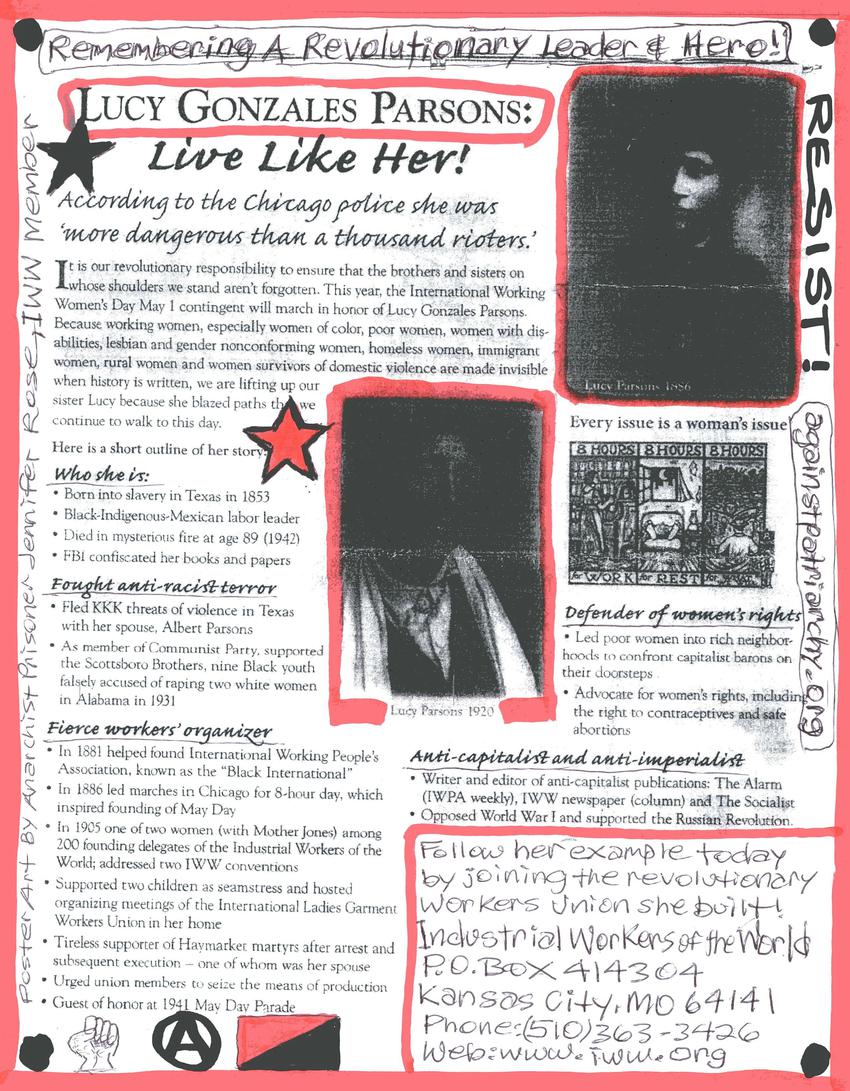 Remembering A Revolutionary Leader & Hero!
LUCY GONZALES PARSONS:
Live Like Her!
According to the Chicago police she was
'more dangerous than a thousand rioters.'
It is our revolutionary responsibility to ensure that the brothers and sisters on
whose shoulders we stand aren't forgotten. This year, the International Working
Women's Day May 1 contingent will march in honor of Lucy Gonzales Parsons.
Because working women, especially women of color, poor women, women with dis-
abilities, lesbian and gender nonconforming women, homeless women, immigrant
women, rural women and women survivors of domestic violence are made invisible
when history is written, we are lifting up our
sister Lucy because she blazed paths that we
continue to walk to this day.
Here is a short outline of her story:
Who she is:
• Born into slavery in Texas in 1853
• Black-Indigenous-Mexican labor leader
• Died in mysterious fire at age 89 (1942)
• FBI confiscated her books and papers
Fought anti-racist terror
• Fled KKK threats of violence in Texas
with her spouse, Albert Parsons
• As member of Communist Party, supported
the Scottsboro Brothers, nine Black youth
falsely accused of raping two white women
in Alabama in 1931
Fierce workers' organizer
• In 1881 helped found International Working People's
Association, known as the "Black International"
• In 1886 led marches in Chicago for 8-hour day, which
inspired founding of May Day
• In 1905 one of two women (with Mother Jones) among
200 founding delegates of the Industrial Workers of the
World; addressed two IWW conventions
• Supported two children as seamstress and hosted
organizing meetings of the International Ladies Garment
Workers Union in her home
• Tireless supporter of Haymarket martyrs after arrest and
subsequent execution – one of whom was her spouse
• Urged union members to seize the means of production
• Guest of honor at 1941 May Day Parade
Lucy Parsons 1886
Lucy Parsons 1920
Every issue is a woman's issue
8 HOURS 8 HOURS 8 HOURS
for WORK for REST for WHAT
Defender of women's rights
• Led poor women into rich neighbor-
hoods to confront capitalist barons on
their doorsteps
• Advocate for women's rights, including
the right to contraceptives and safe
abortions
Anti-capitalist and anti-imperialist
• Writer and editor of anti-capitalist publications: The Alarm
(IWPA weekly), IWW newspaper (column) and The Socialist
• Opposed World War I and supported the Russian Revolution.
Follow her example today
by joining the revolutionary
Workers Union she built!
Industrial Workers of the World
P.O. Box 414304
Kansas City, MO 64141
Phone: (510) 363-3426
Web: www.iww.org
RESIST!
againstpatriarchy.org
Poster Art By Anarchist Prisoner Jennifer Rose, IWW Member
A